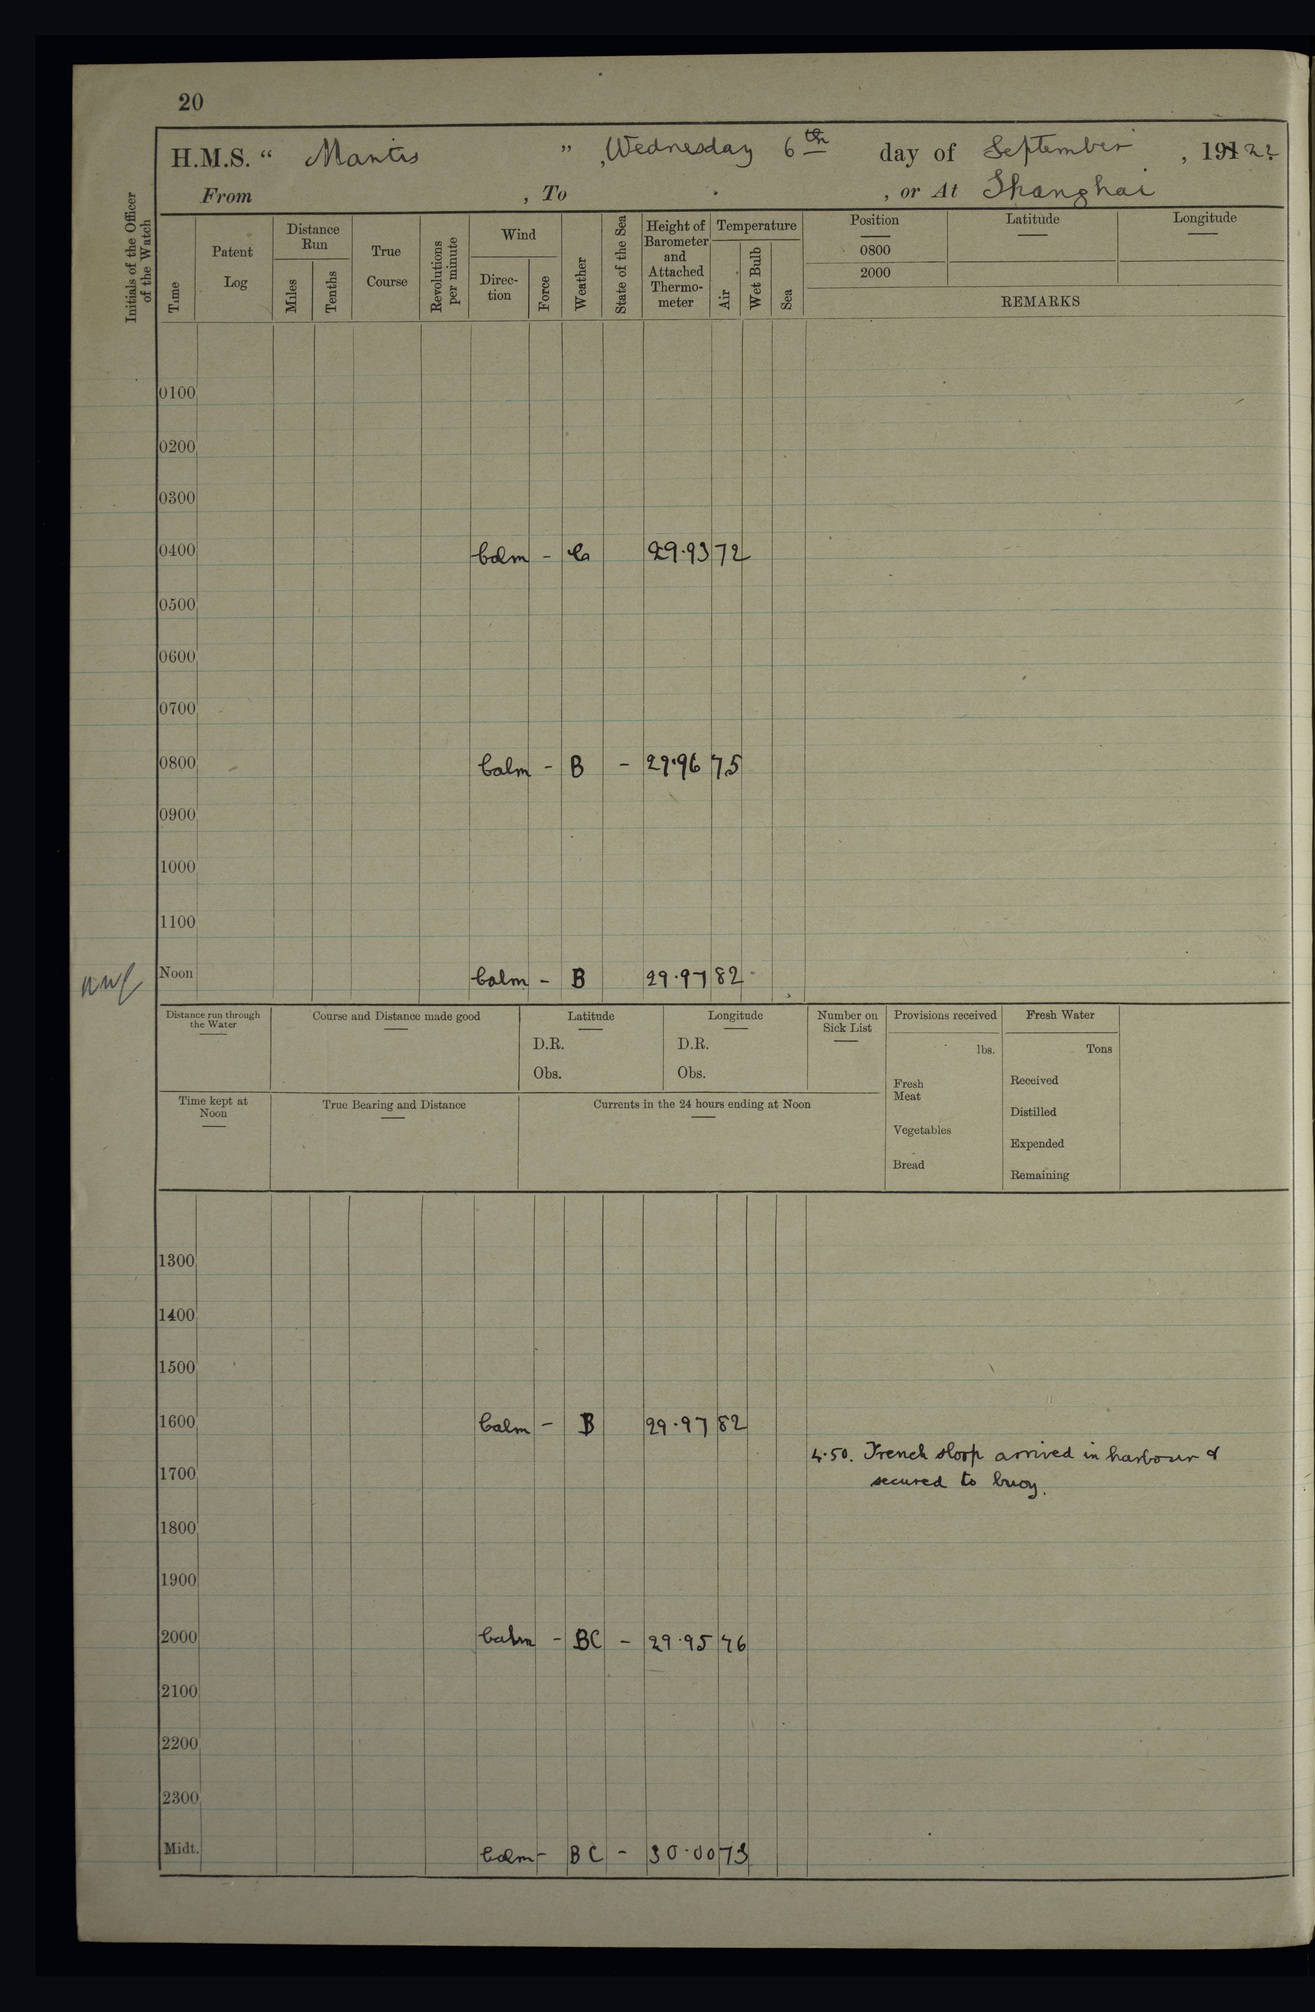 20
H.M.S. “ Mantis ” , Wednesday 6th day of September , 1922
From , To , or At Shanghai
Initials of the Officer of the Watch
Time
Patent Log
Distance Run
Miles
Tenths
True Course
Revolutions per minute
Wind
Direc-tion
Force
Weather
State of the Sea
Height of Barometer and Attached Thermo-meter
Temperature
Air
Wet Bulb
Sea
Position Latitude Longitude
0800
2000
REMARKS
0100
0200
0300
0400 Calm - C 29.93 72
0500
0600
0700
0800 Calm - B - 29.96 75
0900
1000
1100
Noon Calm - B 29.97 82
Distance run through the Water
Course and Distance made good
Latitude
D.R.
Obs.
Longitude
D.R.
Obs.
Number on Sick List
Provisions received
lbs.
Fresh Meat
Vegetables
Bread
Fresh Water
Tons
Received
Distilled
Expended
Remaining
Time kept at Noon
True Bearing and Distance
Currents in the 24 hours ending at Noon
1300
1400
1500
1600 Calm - B 29.97 82
4.50. French sloop arrived in harbour &
1700 secured to buoy.
1800
1900
2000 Calm - BC - 29.95 76
2100
2200
2300
Midt. Calm - BC - 30.00 73